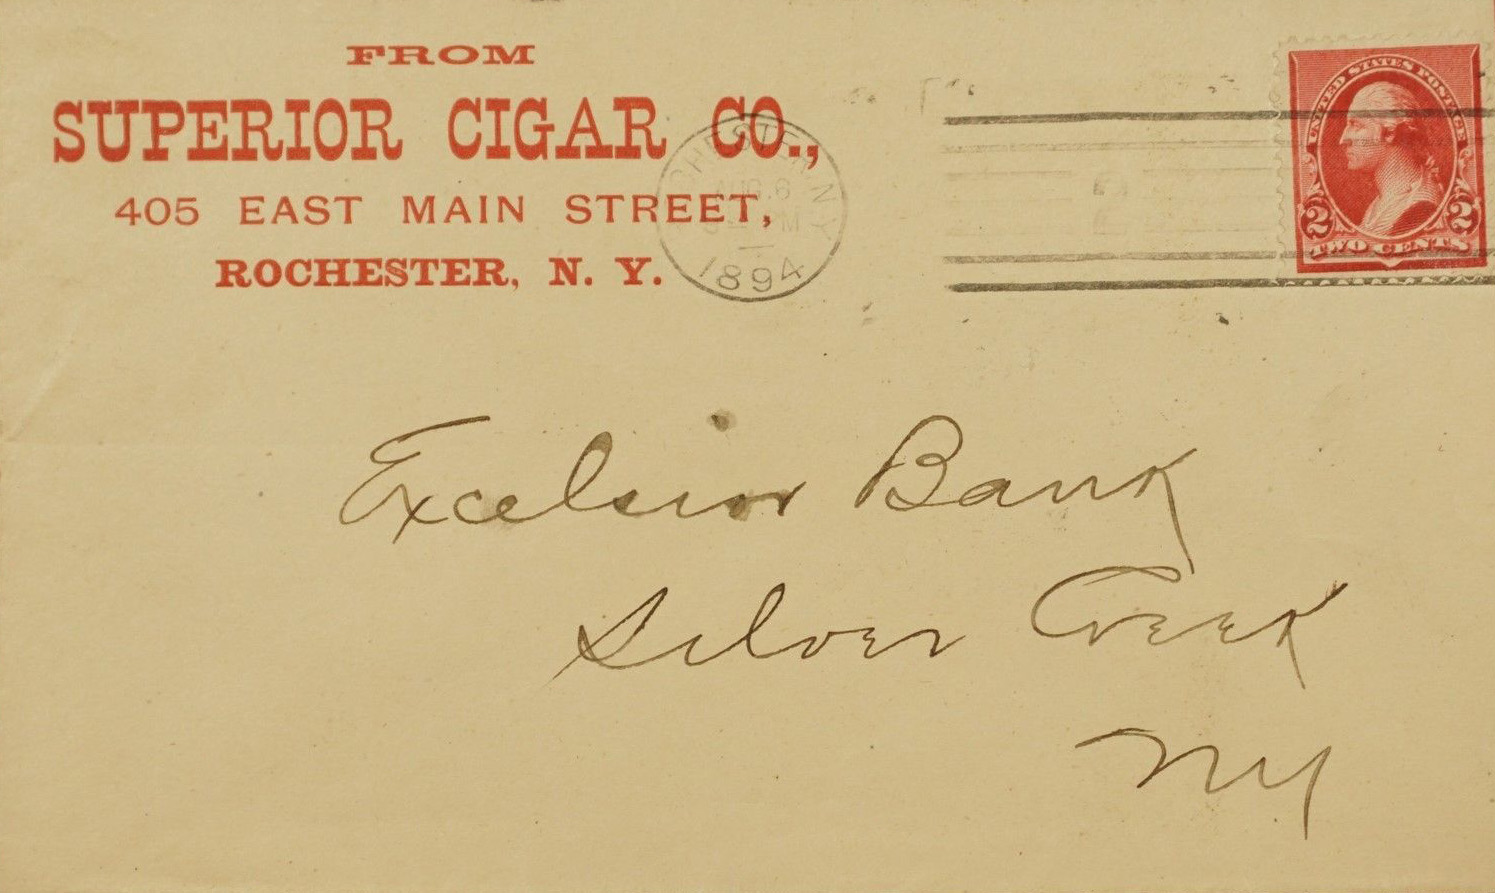 FROM
SUPERIOR CIGAR CO.,
405 EAST MAIN STREET,
ROCHESTER, N. Y.
ROCHESTER N.Y.
AUG 6
M
1894
UNITED STATES POSTAGE
2 2
TWO CENTS
Excelsior Bank
Silver Creek
NY